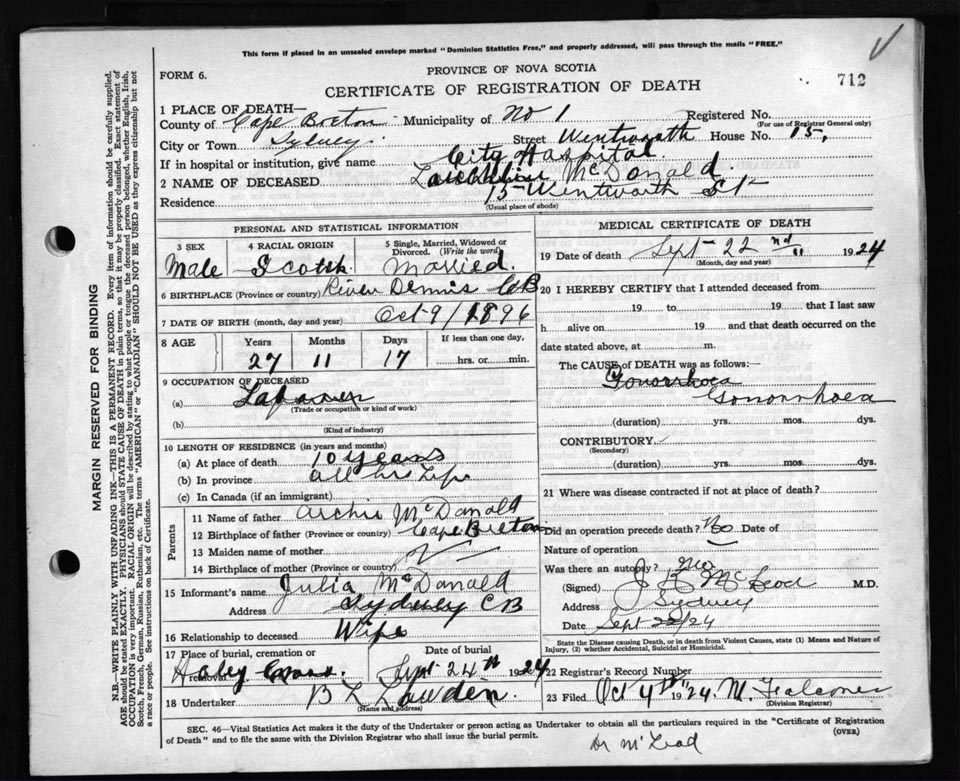 This form if placed in an unsealed envelope marked "Dominion Statistics Free," and properly addressed, will pass through the mails "FREE."
FORM 6.
PROVINCE OF NOVA SCOTIA
712
CERTIFICATE OF REGISTRATION OF DEATH
1 PLACE OF DEATH—
County of Cape Breton Municipality of No 1 Registered No.
(For use of Registrar General only)
City or Town Sydney Street Wentworth House No. 15,
If in hospital or institution, give name City Hospital.
2 NAME OF DECEASED Lauchlin McDonald.
Residence 15 Wentworth St
(Usual place of abode)
PERSONAL AND STATISTICAL INFORMATION
3 SEX
Male
4 RACIAL ORIGIN
Scotch
5 Single, Married, Widowed or Divorced. (Write the word)
Married.
6 BIRTHPLACE (Province or country) River Dennis CB
7 DATE OF BIRTH (month, day and year) Oct 9/1896
8 AGE
Years Months Days If less than one day,
27 11 17 hrs. or min.
9 OCCUPATION OF DECEASED
(a)
(Trade or occupation or kind of work)
(b)
(Kind of industry)
10 LENGTH OF RESIDENCE (in years and months)
(a) At place of death 10 years
(b) In province all his Life
(c) In Canada (if an immigrant)
Parents
11 Name of father Archie McDonald
12 Birthplace of father (Province or country) Cape Breton
13 Maiden name of mother
14 Birthplace of mother (Province or Country)
15 Informant's name Julia McDonald
Address Sydney CB
16 Relationship to deceased Wife
17 Place of burial, cremation or removal Date of burial
Holy Cross. Sept 24th 1924
18 Undertaker B L Lowden.
(Name and address)
MEDICAL CERTIFICATE OF DEATH
19 Date of death Sept 22nd 1924
(Month, day and year)
20 I HEREBY CERTIFY that I attended deceased from
19 to 19 that I last saw
h alive on 19 and that death occurred on the
date stated above, at m.
The CAUSE of DEATH was as follows:
Gonorrhoea
Gonorrhoea
(duration) yrs. mos. dys.
CONTRIBUTORY
(Secondary)
(duration) yrs. mos. dys.
21 Where was disease contracted if not at place of death?
Did an operation precede death? No Date of
Nature of operation
Was there an autopsy? No
(Signed) McLeod M.D.
Address Sydney
Date Sept 22/24
State the Disease causing Death, or in death from Violent Causes, state (1) Means and Nature of Injury, (2) whether Accidental, Suicidal or Homicidal.
22 Registrar's Record Number
23 Filed Oct 4th, 1924 M. Falconer
(Division Registrar)
SEC. 46—Vital Statistics Act makes it the duty of the Undertaker or person acting as Undertaker to obtain all the particulars required in the "Certificate of Registration
of Death" and to file the same with the Division Registrar who shall issue the burial permit.
(OVER)
Dr McLeod
MARGIN RESERVED FOR BINDING
N.B.—WRITE PLAINLY WITH UNFADING INK—THIS IS A PERMANENT RECORD. Every item of information should be carefully supplied.
AGE should be stated EXACTLY. PHYSICIANS should STATE CAUSE OF DEATH in plain terms, so that it may be properly classified. Exact statement of
OCCUPATION is very important. RACIAL ORIGIN will be described by stating to what people or tongue the deceased person belonged, whether English, Irish,
Scotch, French, German, Russian, Ruthenian, etc. The terms "AMERICAN" or "CANADIAN" SHOULD NOT BE USED as they express citizenship but not
a race or people. See instructions on back of Certificate.